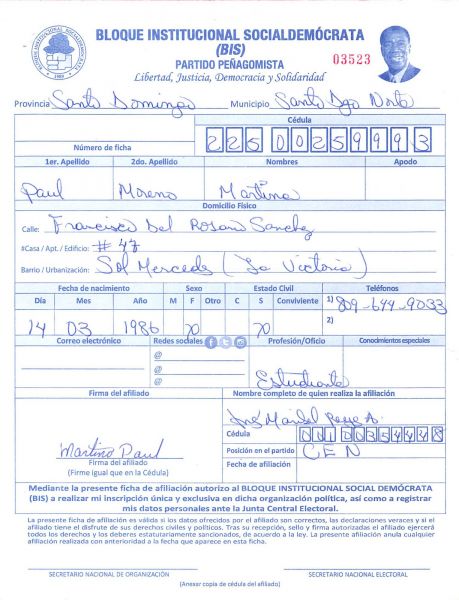 BLOQUE INSTITUCIONAL SOCIALDEMÓCRATA
(BIS)
PARTIDO PEÑAGOMISTA
03523
Libertad, Justicia, Democracia y Solidaridad
Provincia Santo Domingo Municipio Santo Dgo Norte
Cédula
Número de ficha 22500259993
1er. Apellido 2do. Apellido Nombres Apodo
Paul Moreno Martina
Domicilio Físico
Calle: Francisco Del Rosario Sanchez
#Casa / Apt. / Edificio: # 47
Barrio / Urbanización: Sol Mercedes (La Victoria)
Fecha de nacimiento Sexo Estado Civil Teléfonos
Día Mes Año M F Otro C S Conviviente 1) 809-644-9033
2)
14 03 1986
Correo electrónico Redes sociales Profesión/Oficio Conocimientos especiales
@
@
@ Estudiante
Firma del afiliado Nombre completo de quien realiza la afiliación
Cédula 00100354448
Martina Paul
Firma del afiliado
(Firme igual que en la Cédula)
Posición en el partido CEN
Fecha de afiliación
Mediante la presente ficha de afiliación autorizo al BLOQUE INSTITUCIONAL SOCIAL DEMÓCRATA
(BIS) a realizar mi inscripción única y exclusiva en dicha organización política, así como a registrar
mis datos personales ante la Junta Central Electoral.
La presente ficha de afiliación es válida si los datos ofrecidos por el afiliado son correctos, las declaraciones veraces y si el
afiliado tiene el disfrute de sus derechos civiles y políticos. Tras su recepción, sello y firma autorizados el afiliado ejercerá
todos los derechos y los deberes estatutariamente sancionados, de acuerdo a la ley. La presente afiliación anula cualquier
afiliación realizada con anterioridad a la fecha que aparece en esta ficha.
SECRETARIO NACIONAL DE ORGANIZACIÓN SECRETARIO NACIONAL ELECTORAL
(Anexar copia de cédula del afiliado)